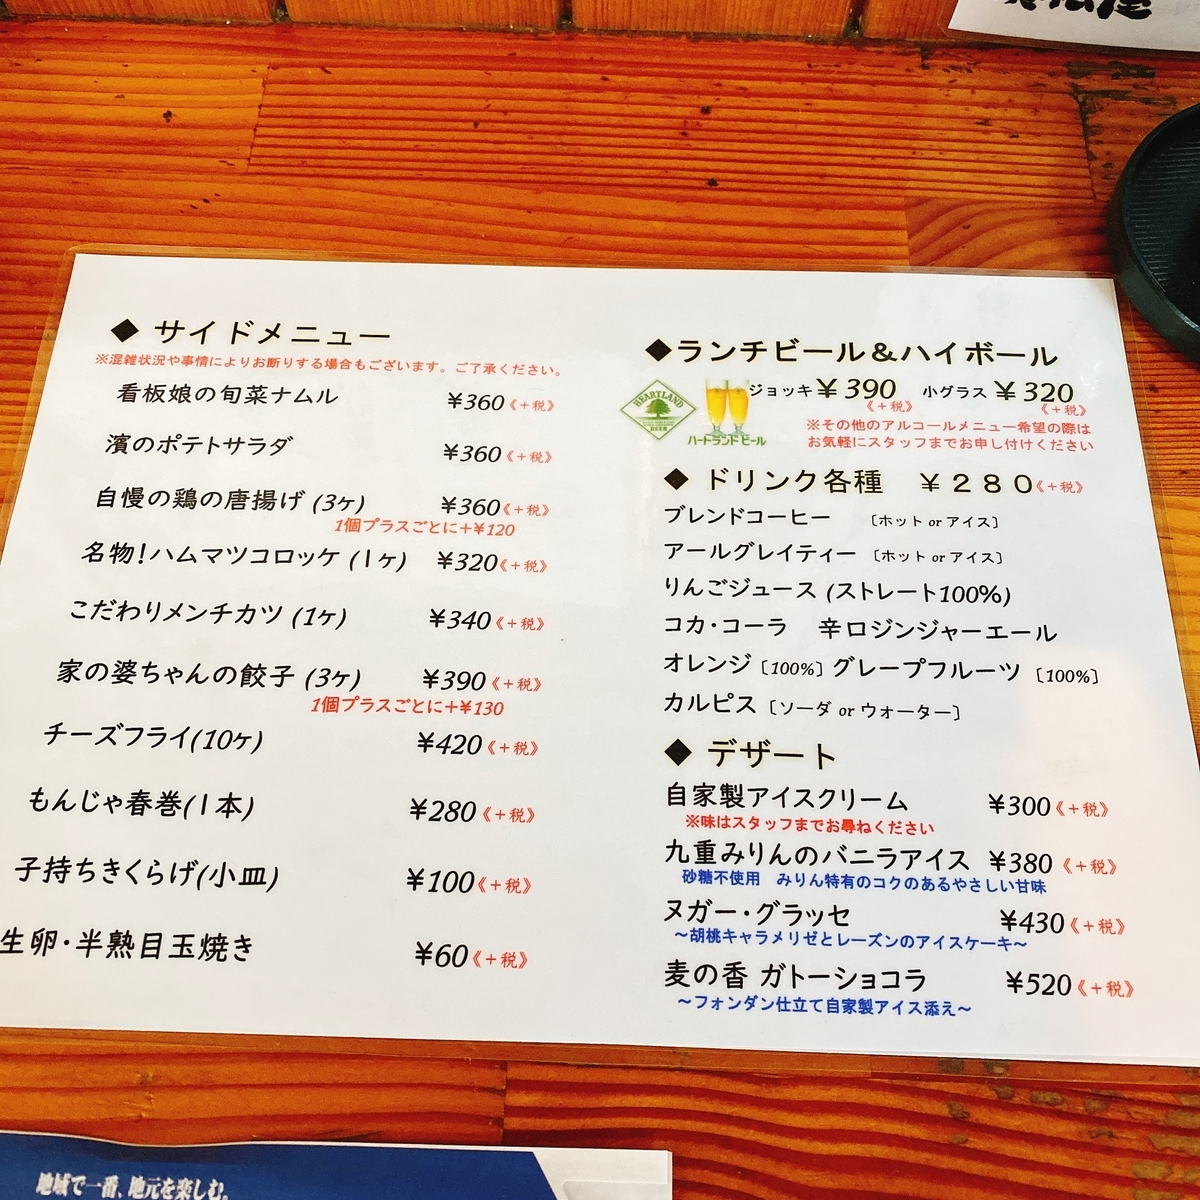 ◆ サイドメニュー
※混雑状況や事情によりお断りする場合もございます。ご了承ください。
看板娘の旬菜ナムル ¥360《+税》
濱のポテトサラダ ¥360《+税》
自慢の鶏の唐揚げ (3ヶ) ¥360《+税》
1個プラスごとに+¥120
名物!ハムマツコロッケ (1ヶ) ¥320《+税》
こだわりメンチカツ (1ヶ) ¥340《+税》
家の婆ちゃんの餃子 (3ヶ) ¥390《+税》
1個プラスごとに+¥130
チーズフライ(10ヶ) ¥420《+税》
もんじゃ春巻(1本) ¥280《+税》
子持ちきくらげ(小皿) ¥100《+税》
生卵・半熟目玉焼き ¥60《+税》
◆ランチビール&ハイボール
HEARTLAND
BEER
ハートランドビール
ジョッキ ¥390 小グラス ¥320
《+税》 《+税》
※その他のアルコールメニュー希望の際は
お気軽にスタッフまでお申し付けください
◆ ドリンク各種 ¥280《+税》
ブレンドコーヒー 〔ホット or アイス〕
アールグレイティー 〔ホット or アイス〕
りんごジュース (ストレート100%)
コカ・コーラ 辛口ジンジャーエール
オレンジ〔100%〕グレープフルーツ〔100%〕
カルピス〔ソーダ or ウォーター〕
◆ デザート
自家製アイスクリーム ¥300《+税》
※味はスタッフまでお尋ねください
九重みりんのバニラアイス ¥380《+税》
砂糖不使用 みりん特有のコクのあるやさしい甘味
ヌガー・グラッセ ¥430《+税》
～胡桃キャラメリゼとレーズンのアイスケーキ～
麦の香 ガトーショコラ ¥520《+税》
～フォンダン仕立て自家製アイス添え～
地域で一番、地元を楽しむ。